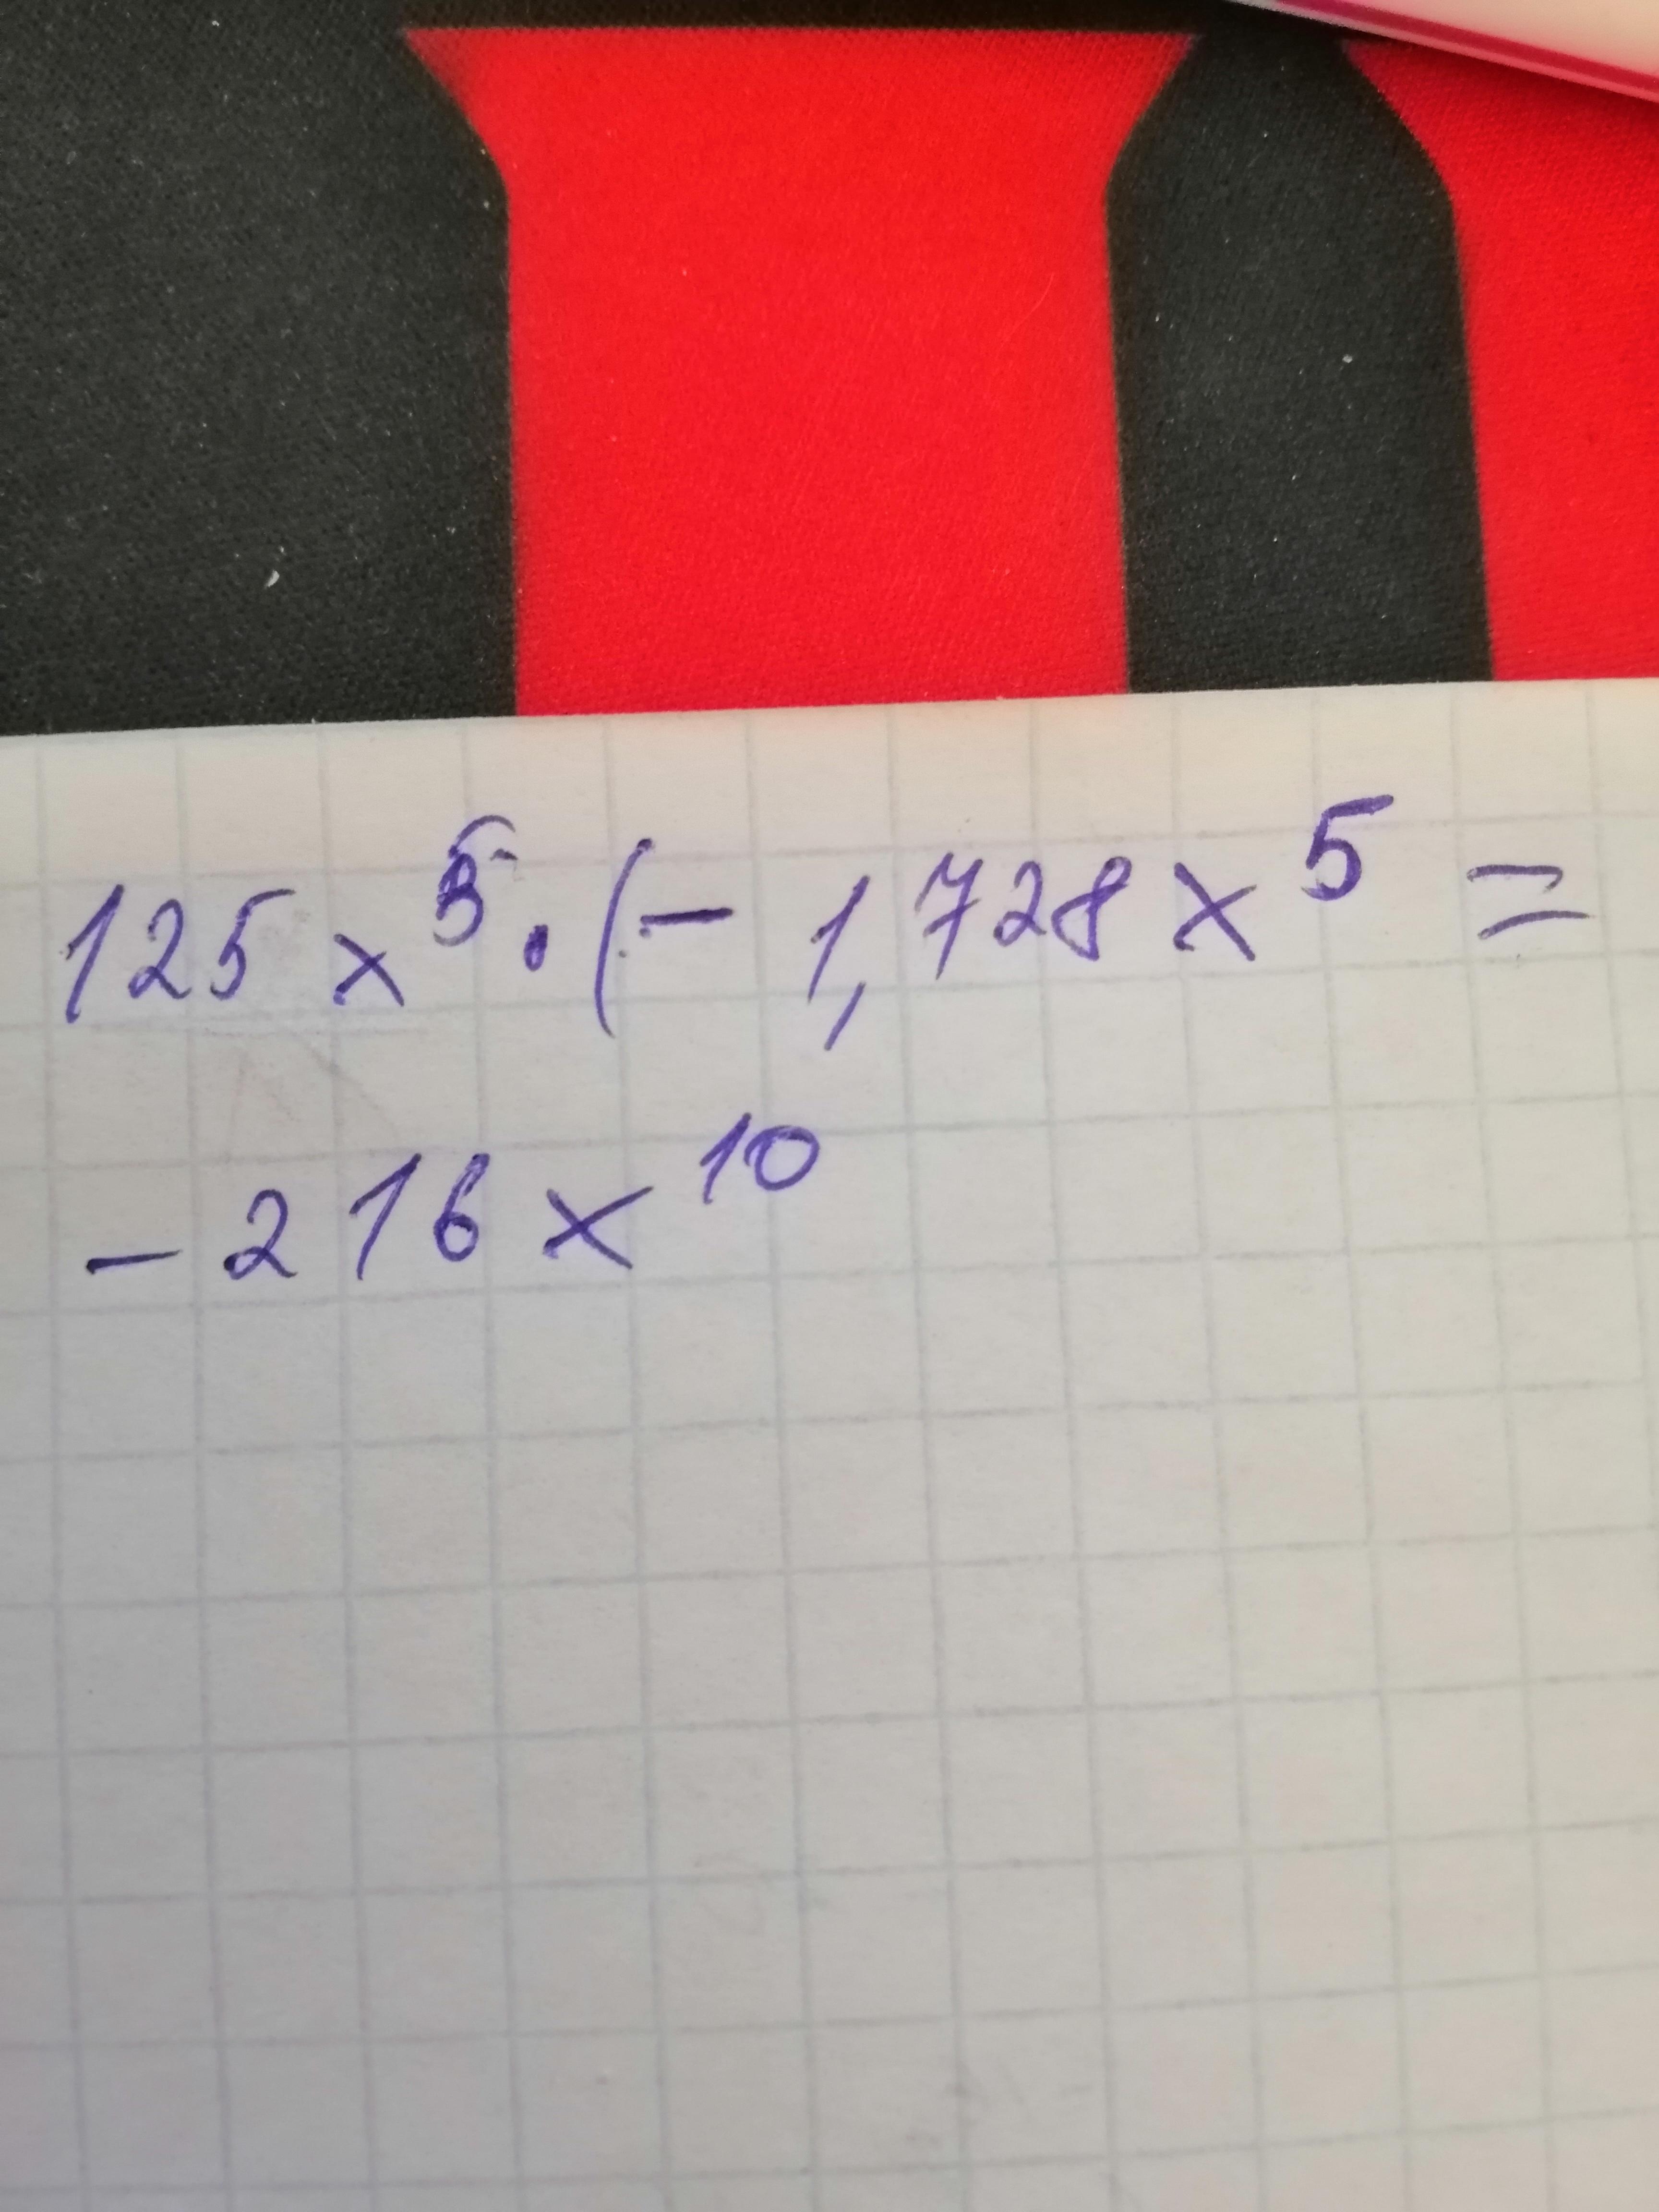 125x⁵·(-1,728x⁵=
-216x¹⁰